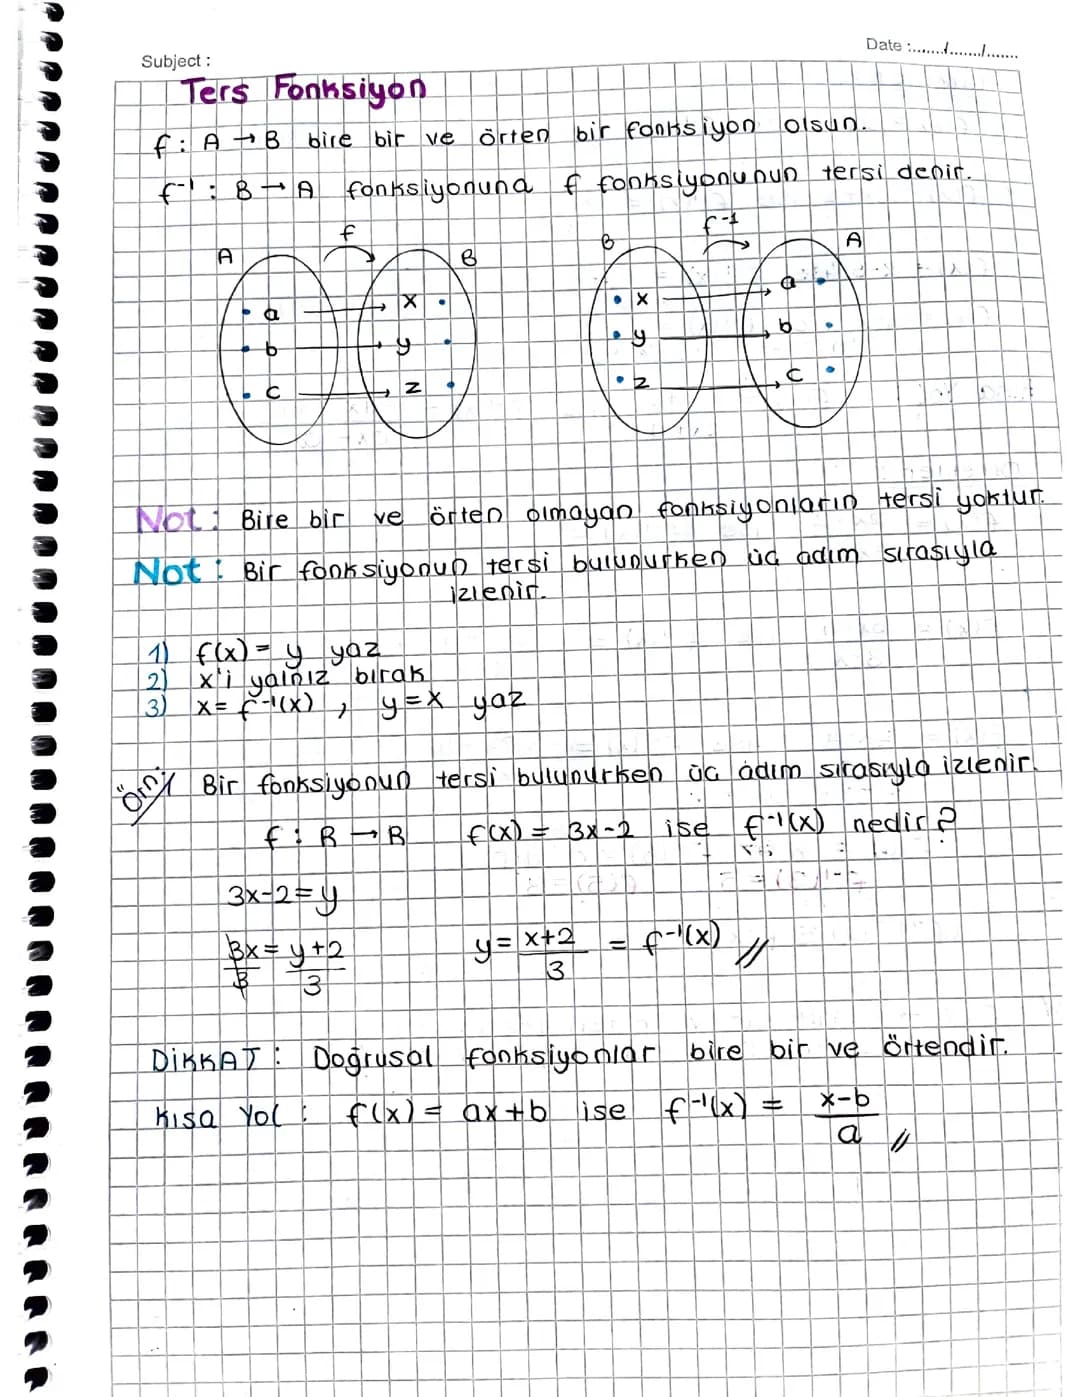 Date :......./......./.......
Subject :
Ters Fonksiyon
f : A → B bire bir ve örten bir fonksiyon olsun.
f⁻¹ : B → A fonksiyonuna f fonksiyonunun tersi denir.
f
A B
a x
b y
c z
f⁻¹
B A
x a
y b
z c
Not : Bire bir ve örten olmayan fonksiyonların tersi yoktur.
Not : Bir fonksiyonun tersi bulunurken üç adım sırasıyla
izlenir.
1) f(x) = y yaz
2) x'i yalnız bırak
3) x = f⁻¹(x) , y = x yaz
Örn/ Bir fonksiyonun tersi bulunurken üç adım sırasıyla izlenir.
f : R → R f(x) = 3x-2 ise f⁻¹(x) nedir?
3x-2 = y
3x/3 = y+2/3 y = x+2/3 = f⁻¹(x) //
DİKKAT : Doğrusal fonksiyonlar bire bir ve örtendir.
Kısa Yol : f(x) = ax+b ise f⁻¹(x) = x-b/a //